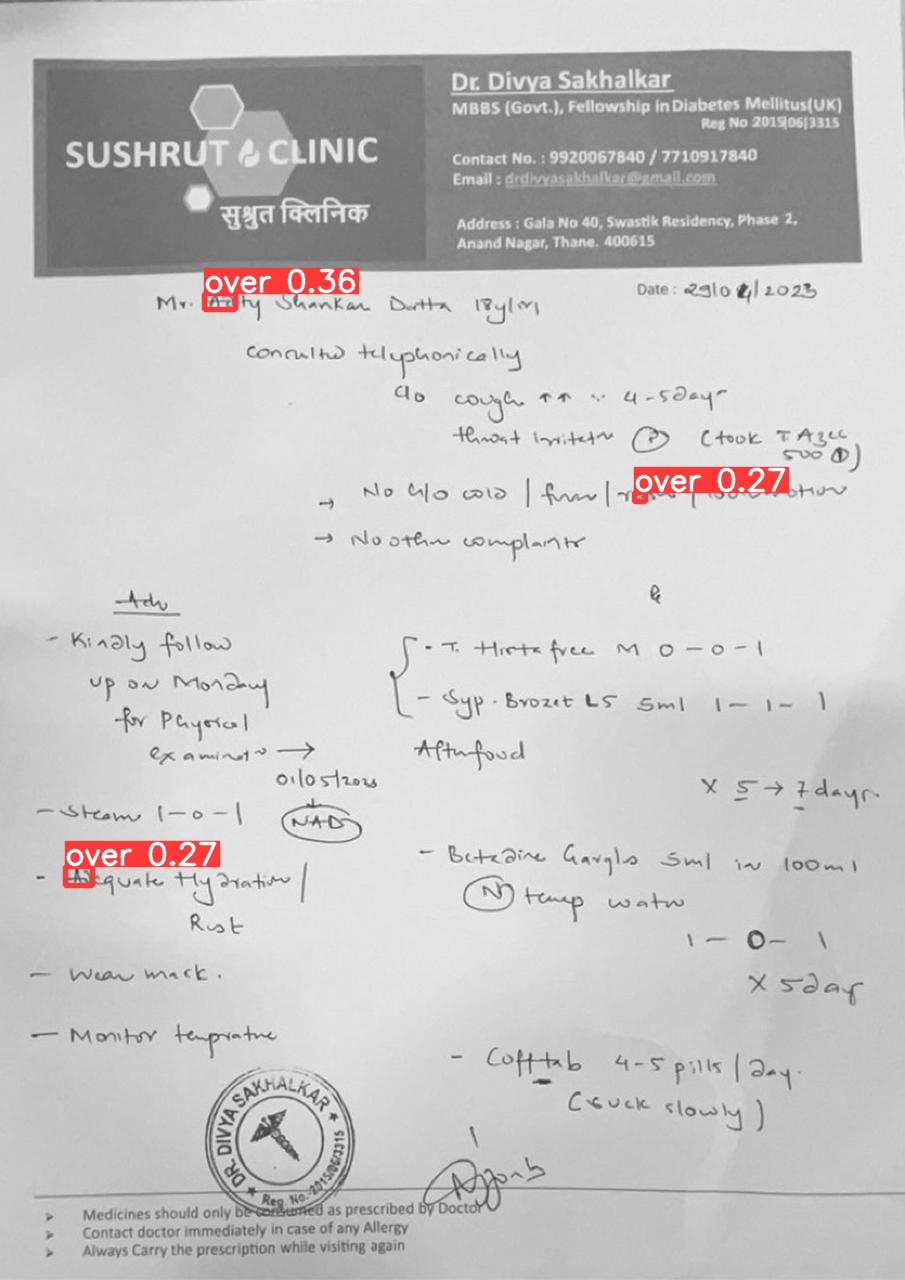 SUSHRUT CLINIC
सुश्रुत क्लिनिक
Dr. Divya Sakhalkar
MBBS (Govt.), Fellowship in Diabetes Mellitus(UK)
Reg No 2015|06|3315
Contact No. : 9920067840 / 7710917840
Email : drdivyasakhalkar@gmail.com
Address : Gala No 40, Swastik Residency, Phase 2,
Anand Nagar, Thane. 400615
over 0.36
Date : 29/04/2023
Mr. Shankar Dutta 18y/M
Consulted telephonically
C/o cough ↑↑ 4-5day
throat (took T Azee
500 ①)
over 0.27
→ No C/o cold /
→ No other complaints
Adv
- Kindly follow
up on Monday
for Physical
examinatn →
01/05/2023
NAD
- Steam 1-0-1
over 0.27
- Adequate Hydration /
Rest
- Wear mask.
- Monitor temprature
- T. Histafree M 0-0-1
- Syp. Brozet LS 5ml 1-1-1
After food
X 5 → 7 days.
- Betadine Gargles 5ml in 100ml
(N) temp water
1 - 0 - 1
X 5 day
- Cofftab 4-5 pills / day.
(suck slowly)
DR. DIVYA SAKHALKAR
Reg. No.-2015/06/3315
➤ Medicines should only be consumed as prescribed by Doctor
➤ Contact doctor immediately in case of any Allergy
➤ Always Carry the prescription while visiting again